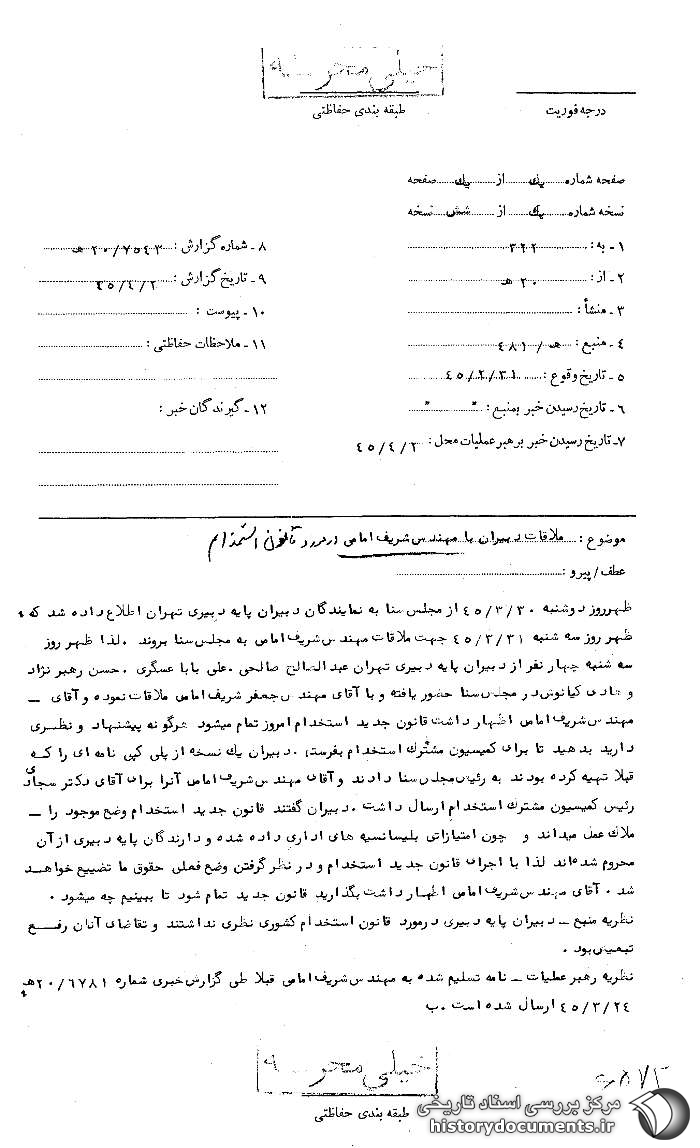 خیلی محرمانه
طبقه بندی حفاظتی
درجه فوریت
صفحه شماره یك از یك صفحه
نسخه شماره یك از شش نسخه
۱ـ به : ۳۲۲
۲ـ از : ۲۰ هـ
۳ـ منشأ :
۴ـ منبع : هـ / ۴۸۱
۵ ـ تاریخ وقوع : ۴۵/۳/۳۱
۶ ـ تاریخ رسیدن خبر بمنبع : " "
۷ـ تاریخ رسیدن خبر برهبر عملیات محل : ۴۵/۴/۲
۸ ـ شماره گزارش : ۲۰/۷۵۴۳ هـ
۹ ـ تاریخ گزارش : ۴۵/۴/۲
۱۰ ـ پیوست :
۱۱ ـ ملاحظات حفاظتی :
۱۲ ـ گیرندگان خبر :
موضوع : ملاقات دبیران با مهندس شریف امامی در مورد قانون استخدام
عطف/ پیرو :
ظهر روز دوشنبه ۴۵/۳/۳۰ از مجلس سنا به نمایندگان دبیران پایه دبیری تهران اطلاع داده شد که
ظهر روز سه شنبه ۴۵/۳/۳۱ جهت ملاقات مهندس شریف امامی به مجلس سنا بروند . لذا ظهر روز
سه شنبه چهار نفر از دبیران پایه دبیری تهران عبدالصالح صالحی . علی بابا عسگری . حسن رهبر نژاد
و هادی کیانوش در مجلس سنا حضور یافته و با آقای مهندس جعفر شریف امامی ملاقات نموده و آقای ـ
مهندس شریف امامی اظهار داشت قانون جدید استخدام امروز تمام میشود هرگونه پیشنهاد و نظری
دارید بدهید تا برای کمیسیون مشترک استخدام بفرستم . دبیران یك نسخه از پلی کپی نامه ای را که
قبلا تهیه کرده بودند به رئیس مجلس سنا دادند و آقای مهندس شریف امامی آنرا برای آقای دکتر سجادی
رئیس کمیسیون مشترك استخدام ارسال داشت . دبیران گفتند قانون جدید استخدام وضع موجود را ـ
ملاك عمل میداند و چون امتیازاتی بلیسانسیه های اداری داده شده و دارندگان پایه دبیری از آن
محروم شده‌اند لذا با اجرای قانون جدید استخدام و در نظر گرفتن وضع فعلی حقوق ما تضییع خواهد
شد . آقای مهندس شریف امامی اظهار داشت بگذارید قانون جدید تمام شود تا ببینیم چه میشود .
نظریه منبع ـ دبیران پایه دبیری در مورد قانون استخدام کشوری نظری نداشتند و تقاضای آنان رفع
تبعیض بود .
نظریه رهبر عملیات ـ نامه تسلیم شده به مهندس شریف امامی قبلا طی گزارش خبری شماره ۲۰/۶۷۸۱ هـ
۴۵/۳/۲۴ ارسال شده است . ب
خیلی محرمانه
طبقه بندی حفاظتی
مرکز بررسی اسناد تاریخی
historydocuments.ir